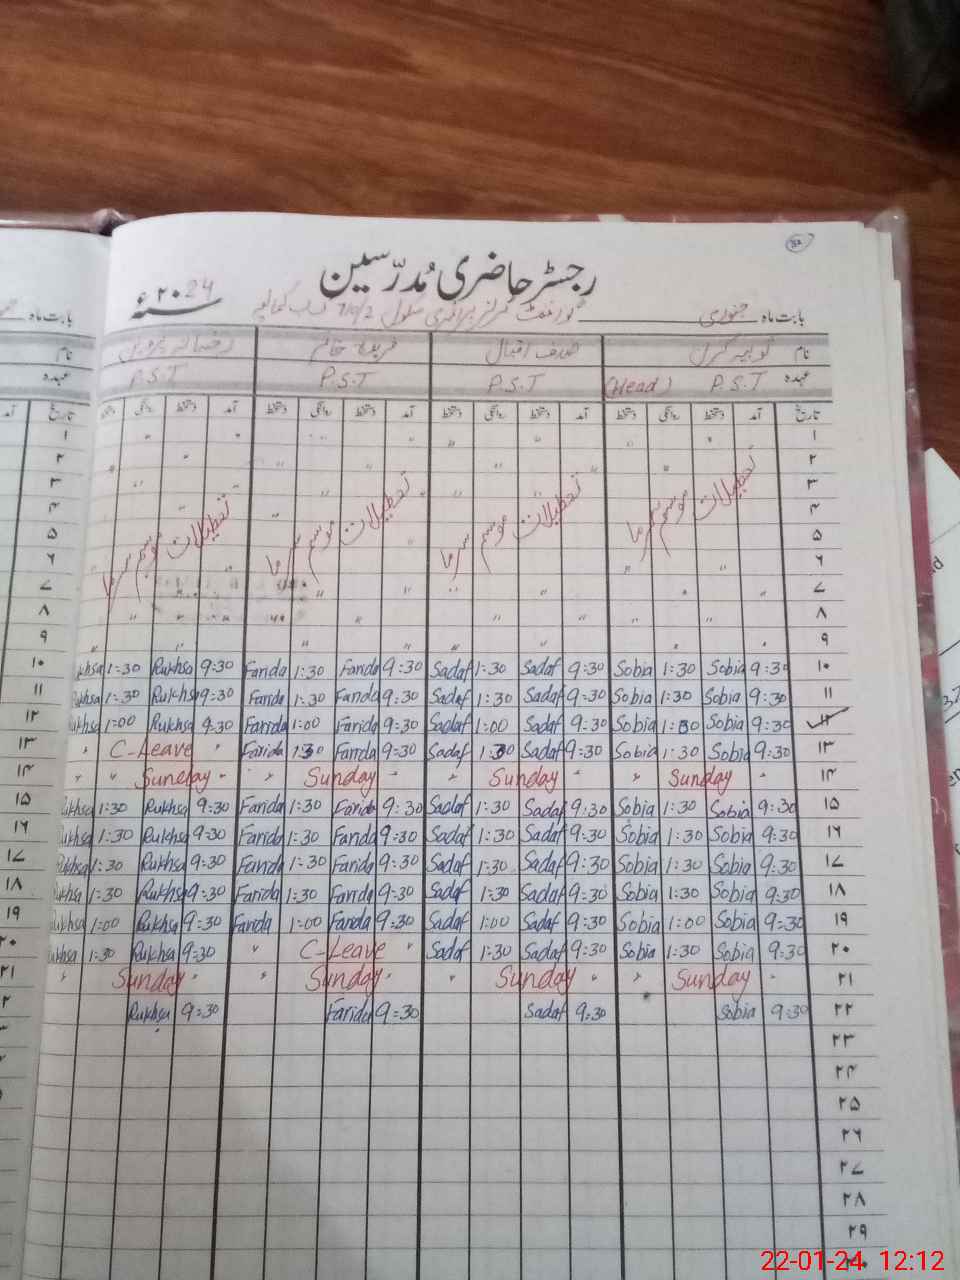 رجسٹر حاضری مدرّسین
سنہ ۲۰24ء
بابت ماہ جنوری گورنمنٹ گرلز پرائمری سکول
نام ثوبیہ صدف اقبال فریدہ خانم
عہدہ P.S.T (Head) P.S.T P.S.T P.S.T
تاریخ آمد دستخط روانگی دستخط آمد دستخط روانگی دستخط آمد دستخط روانگی دستخط آمد دستخط روانگی دستخط
۱ " " " " " " "
۲ " " " " " "
۳ " "
۴ "
۵ "
تعطیلات موسم سرما تعطیلات موسم سرما تعطیلات موسم سرما تعطیلات موسم سرما
۶ " " "
۷ " " " " "
۸ " " " " "
۹ " " " " "
khsa 1:30 Rukhsa 9:30 Farida 1:30 Farida 9:30 Sadaf 1:30 Sadaf 9:30 Sobia 1:30 Sobia 9:30 ۱۰
ukhsa 1:30 Rukhsa 9:30 Farida 1:30 Farida 9:30 Sadaf 1:30 Sadaf 9:30 Sobia 1:30 Sobia 9:30 ۱۱
ukhsa 1:00 Rukhsa 9:30 Farida 1:00 Farida 9:30 Sadaf 1:00 Sadaf 9:30 Sobia Sobia 9:30 ۱۲
" C-Leave " Farida 1:30 Farida 9:30 Sadaf 1:30 Sadaf 9:30 Sobia 1:30 Sobia 9:30 ۱۳
" " Sunday " " Sunday " " Sunday " " Sunday " ۱۴
ukhsa 1:30 Rukhsa 9:30 Farida 1:30 Farida 9:30 Sadaf 1:30 Sadaf 9:30 Sobia 1:30 Sobia 9:30 ۱۵
ukhsa 1:30 Rukhsa 9:30 Farida 1:30 Farida 9:30 Sadaf 1:30 Sadaf 9:30 Sobia 1:30 Sobia 9:30 ۱۶
ukhsa 1:30 Rukhsa 9:30 Farida 1:30 Farida 9:30 Sadaf 1:30 Sadaf 9:30 Sobia 1:30 Sobia 9:30 ۱۷
ukhsa 1:30 Rukhsa 9:30 Farida 1:30 Farida 9:30 Sadaf 1:30 Sadaf 9:30 Sobia 1:30 Sobia 9:30 ۱۸
ukhsa 1:00 Rukhsa 9:30 Farida 1:00 Farida 9:30 Sadaf 1:00 Sadaf 9:30 Sobia 1:00 Sobia 9:30 ۱۹
ukhsa 1:30 Rukhsa 9:30 " C-Leave " Sadaf 1:30 Sadaf 9:30 Sobia 1:30 Sobia 9:30 ۲۰
" Sunday " " Sunday " " Sunday " " Sunday " ۲۱
Rukhsa 9:30 Farida 9:30 Sadaf 9:30 Sobia 9:30 ۲۲
۲۳
۲۴
۲۵
۲۶
۲۷
۲۸
۲۹
22-01-24 12:12